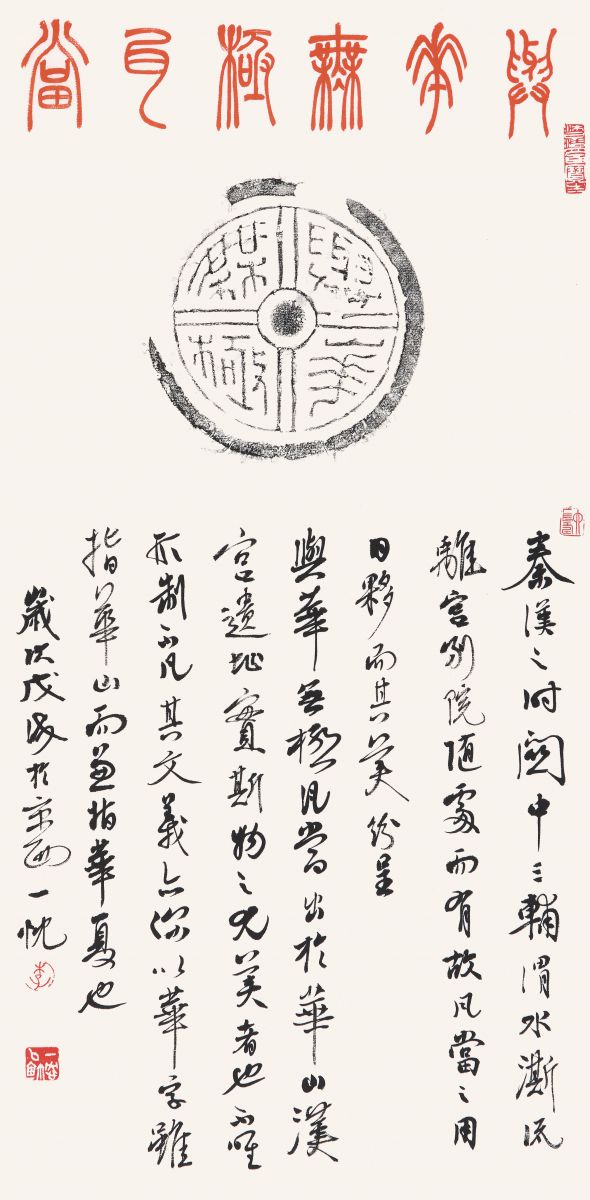 與華無極瓦當
與華無極
秦漢之時關中三輔渭水澌流
離宮別院隨處而有故瓦當之用
日夥而其美紛呈
與華無極瓦當出於華山漢
宮遺址實斯物之尤美者也不唯
形制不凡其文義亦深以華字雖
指華山而兼指華夏也
歲次戊戌於京西一忱
李